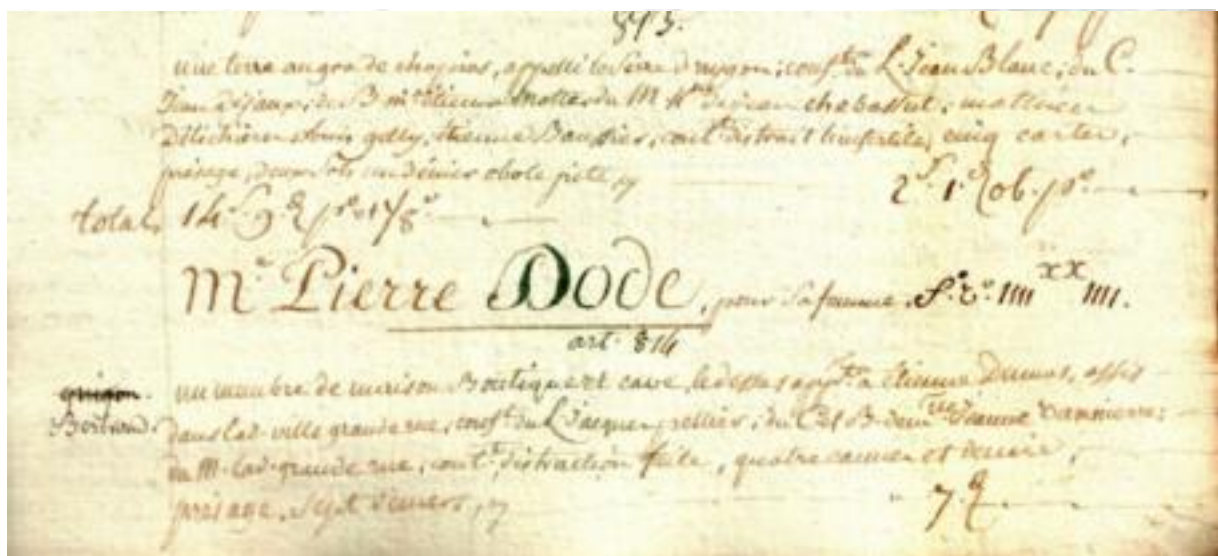 813.
une terre au gra de chapins, appellé le Serre d'nygon; conf.te du L. Jean Blanc, du C.
Jean dejaux, du B. m.e étienne Mottes, du M. h.rs de jean chabassut,
gilly, étienne Baussier, cont.t distrait l'infertile, cinq cartes,
présage, deux sols un dénier obole pitte
2.s 1.d ob. p.e
total. 14.s 9.d p.e 1/8.e
M.e Pierre Dode, pour sa femme. f.o r.o IIII XX IIII.
art. 814
un membre de maison Boutique et cave, le dessus appt.t a étienne Dumas, assis
Bertrand. dans lad. ville grande rue, conf.t du L. Jacques pellier, du C. et B. dem.lle Jeanne Vannierre;
du M. lad. grande rue, cont.t distraction faite, quatre cannes et demie,
présage, sept deniers,
7.d